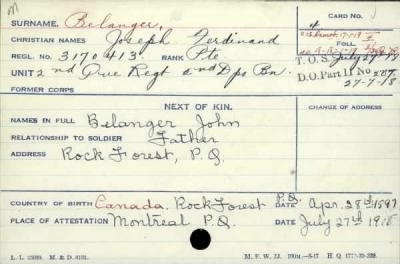 M
SURNAME, Belanger,
CARD NO.
CHRISTIAN NAMES Joseph Ferdinand
REGL. NO. 3170413. RANK Pte
FOLL
T. O. S. July 27-18
UNIT 2nd Que Regt 2nd Dps Bn.
D.O. Part II No
27-7-18
FORMER CORPS
NEXT OF KIN.
CHANGE OF ADDRESS
NAMES IN FULL Belanger John
RELATIONSHIP TO SOLDIER Father
ADDRESS Rock Forest, P.Q.
COUNTRY OF BIRTH Canada, Rock Forest P.Q. DATE Apr. 28th 1897
PLACE OF ATTESTATION Montreal P.Q. DATE July 27th 1918
M. F. W. H. Q. 1772-39-339.